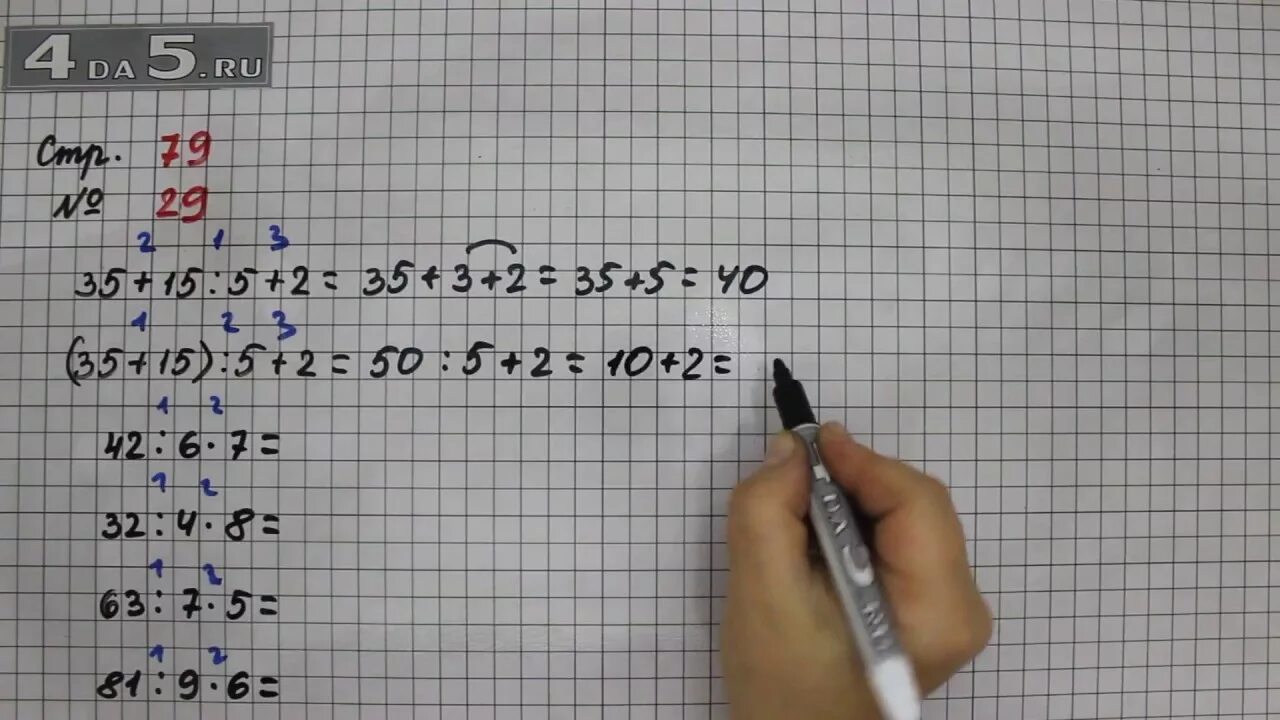 4DA5.RU
Стр. 79
№ 29
2 1 3
35+15:5+2= 35+3+2= 35+5= 40
1 2 3
(35+15):5+2= 50:5+2= 10+2=
1 2
42:6·7=
1 2
32:4·8=
1 2
63:7·5=
1 2
81:9·6=